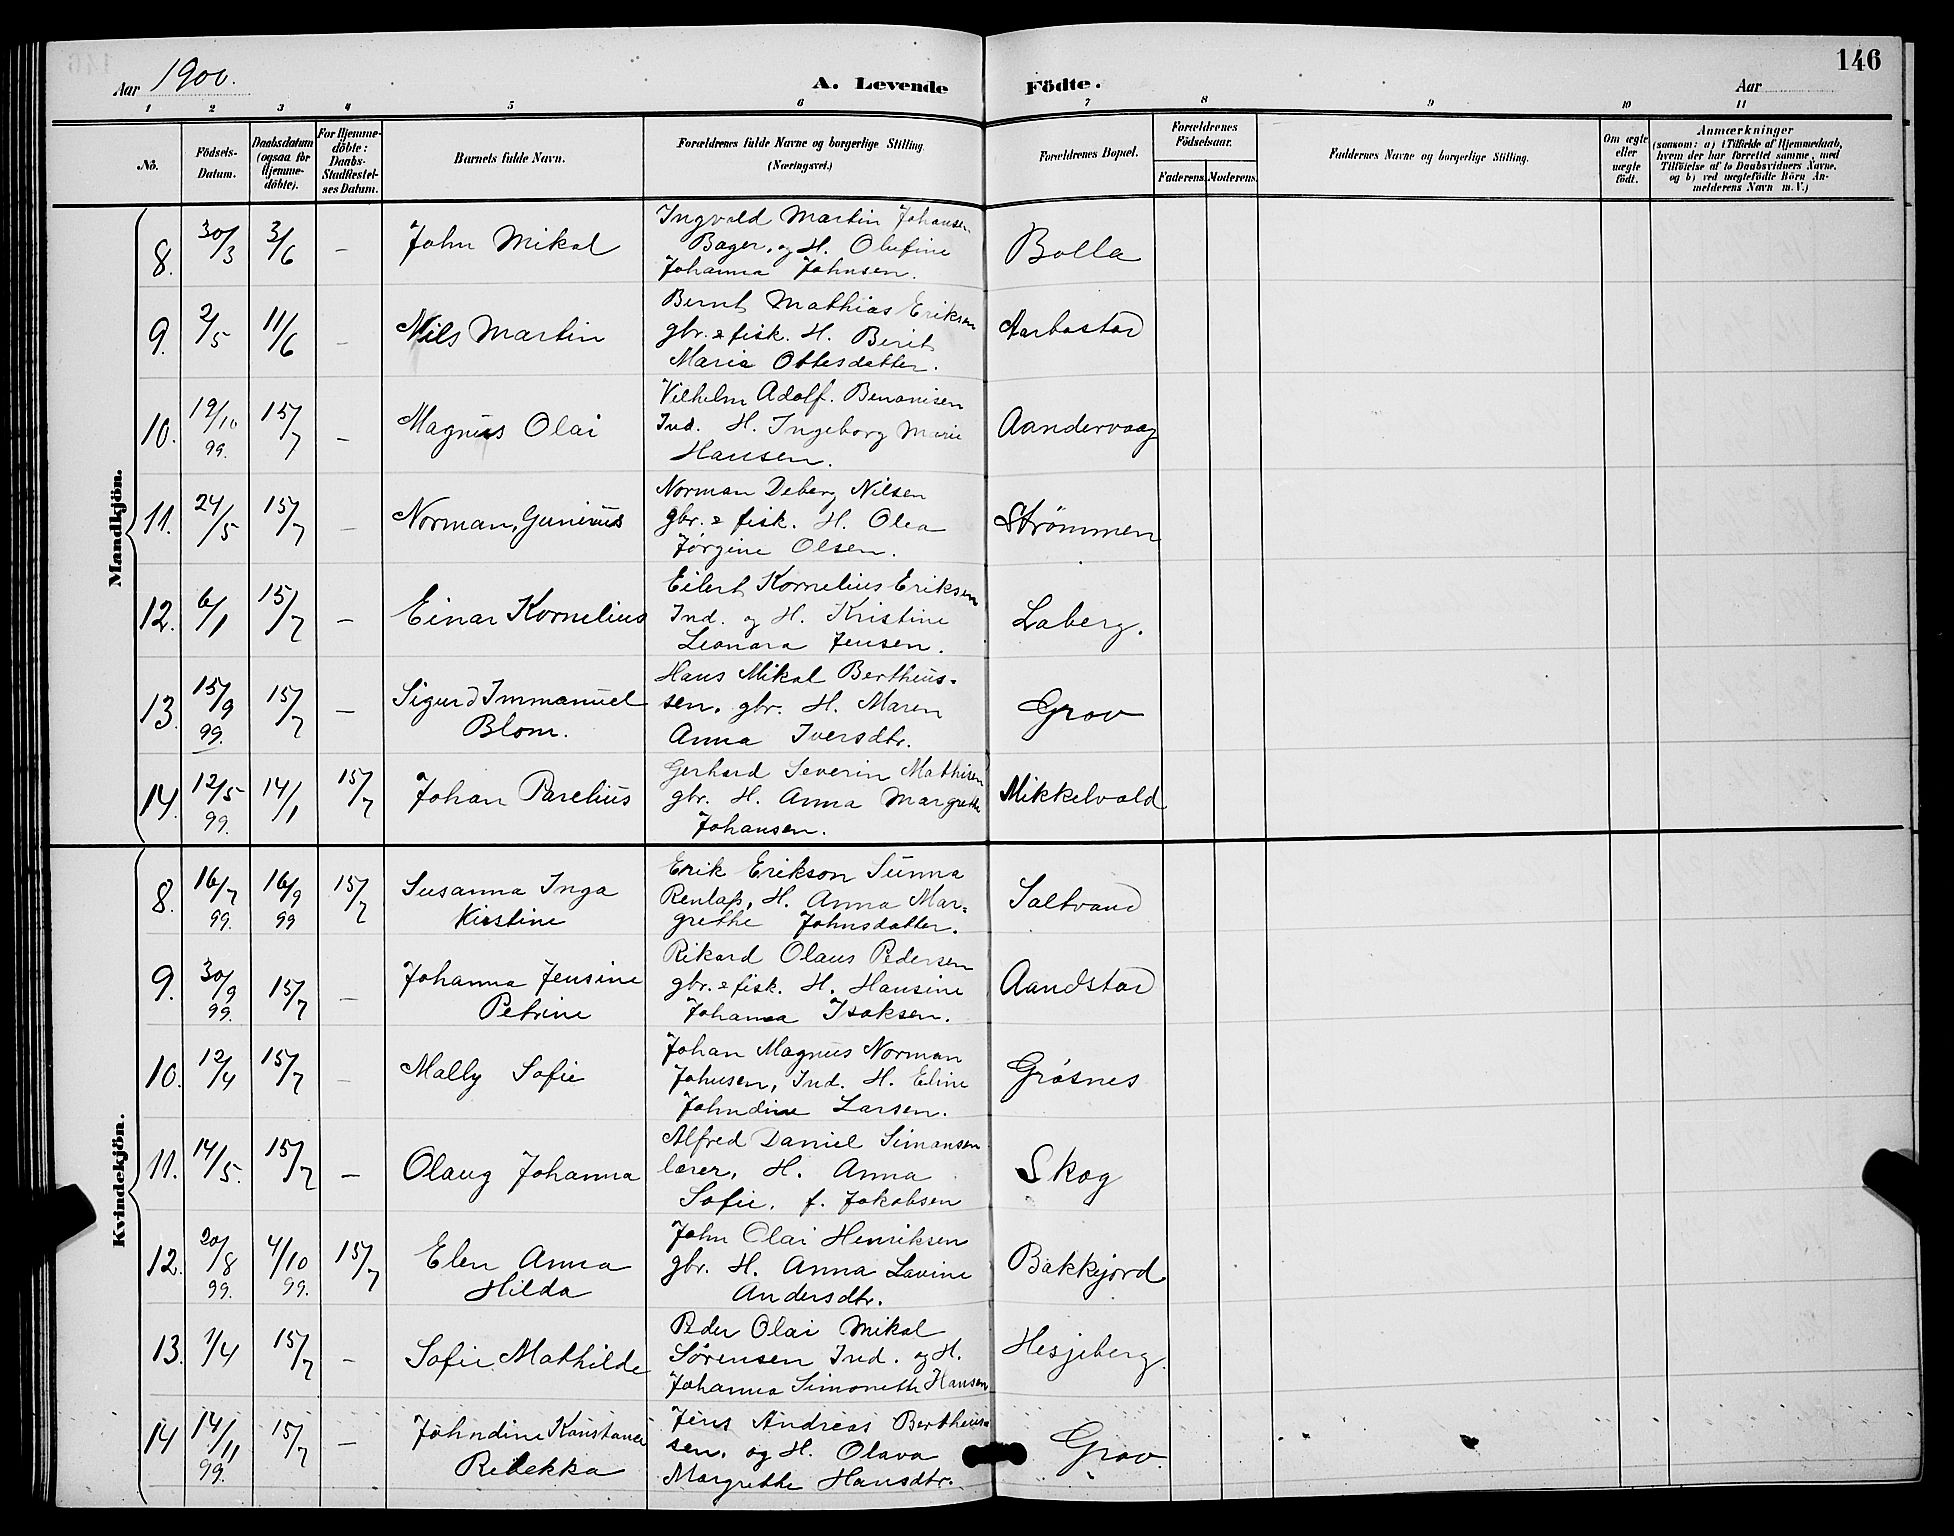 Aar 1900.
A. Levende Födte.
Aar
146
1 2 3 4 5 6 7 8 9 10 11
No.
Födsels-Datum.
Daabsdatum (ogsaa for Hjemme-döbte).
For Hjemme-döbte: Daabs-Stadfæstel-ses Datum.
Barnets fulde Navn.
Forældrenes fulde Navne og borgerlige Stilling (Næringsvei.)
Forældrenes Bopæl.
Forældrenes Födselsaar.
Faderens. Moderens.
Faddernes Navne og borgerlige Stilling.
Om ægte eller uægte födt.
Anmærkninger
(saasom: a) i Tilfælde af Hjemmedaab,
hvem der har forrettet samme, med
Tilföielse af to Daabsvidners Navne,
og b) ved uægtefödte Börn An-
melderens Navn m. V.)
Mandkjön.
8. 30/3 3/6 – John Mikal
Ingvald Martin Johansen
Bager, og H. Olufine
Johanna Johnsen.
Bolla
9. 2/5 11/6 – Nils Martin
Bernt Mathias Eriksen
gbr. & fisk. H. Berit
Marie Ottesdatter.
Aarbostad
10. 19/10 99. 15/7 – Magnus Olai
Vilhelm Adolf. Benonisen
Ind. H. Ingeborg Marie
Hansen.
Aandervaag
11. 24/5 15/7 – Norman, Gunerius
Norman Deberg Nilsen
gbr. & fisk. H. Olea
Jörgine Olsen.
Strømmen
12. 6/1 15/7 – Einar Kornelius
Eilert Kornelius Eriksen
Ind. og H. Kristine
Leonara Jensen.
Laberg.
13. 15/9 99. 15/7 – Sigurd Immanuel
Blom.
Hans Mikal Bertheus-
sen. gbr. H. Maren
Anna Iversdtr.
Grov
14. 12/5 99. 14/1 15/7 Johan Parelius
Gerhard Severin Mathisen
gbr. H. Anna Margrethe
Johansen.
Mikkelvold
Kvindekjön.
8. 16/7 99. 16/9 99 15/7 Susanna Inga
Kirstine
Erik Erikson Sunna
Renlap, H. Anna Mar=
grethe Johnsdatter.
Saltvand
9. 30/9 99. 15/7 – Johanna Jensine
Petrine
Rikard Olaus Pedersen
gbr. & fisk. H. Hansine
Johanna Isaksen.
Aandstad
10. 12/4 15/7 – Mally Sofie
Johan Magnus Norman
Johnsen, Ind. H. Eline
Johndine Larsen.
Grøsnes
11. 14/5. 15/7 – Olaug Johanna
Alfred Daniel Simonsen
lærer, H. Anna
Sofie. f. Jakobsen
Skog
12. 20/8 99. 4/10 99. 15/7 Elen Anna
Hilda
John Olai Henriksen
gbr. H. Anna Lavine
Andersdtr.
Bakkejord
13. 1/4 15/7 – Sofie Mathilde
Peder Olai Mikal
Sørensen Ind. og H.
Johanna Simoneth Hansen
Hesjeberg.
14 14/11 99. 15/7 – Johndine Konstance
Rebekka
Jens Andreas Bertheus=
sen. og H. Olava
Margrethe Hansdtr.
Grov.